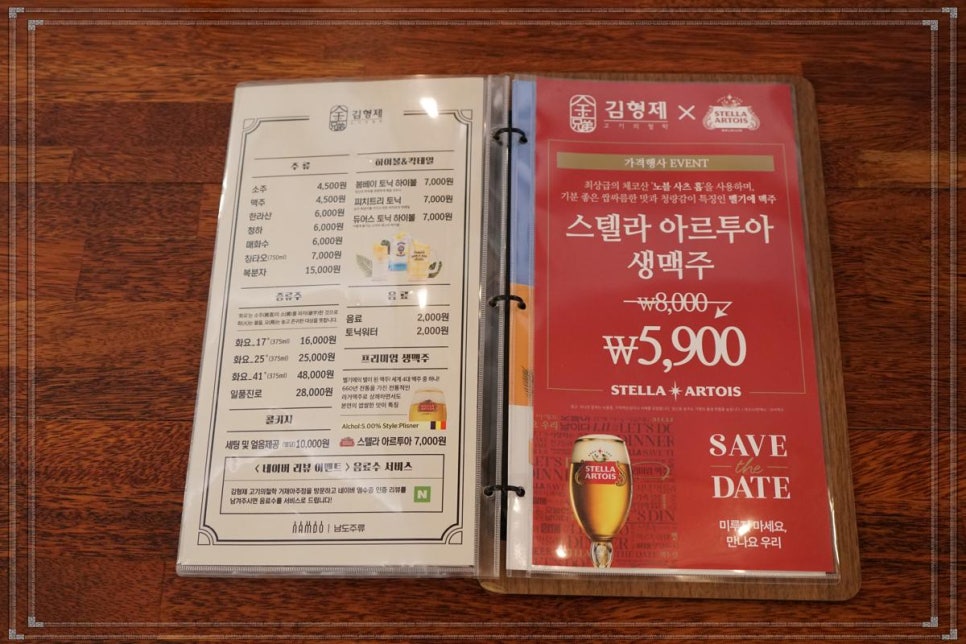 김형제
고기의철학
주 류
소주 4,500원
맥주 4,500원
한라산 6,000원
청하 6,000원
매화수 6,000원
칭타오(750ml) 7,000원
복분자 15,000원
증류주
화요_17°(375ml) 16,000원
화요_25°(375ml) 25,000원
화요_41°(375ml) 48,000원
일품진로 28,000원
콜키지
세팅 및 얼음제공 (병당)10,000원
하이볼&칵테일
봄베이 토닉 하이볼 7,000원
피치트리 토닉 7,000원
듀어스 토닉 하이볼 7,000원
음 료
음료 2,000원
토닉워터 2,000원
프리미엄 생맥주
벨기에의 별이 된 맥주! 세계 4대 맥주 중 하나!
660년 전통을 가진 전통적인
라거맥주로 상쾌하면서도
본연의 쌉쌀한 맛이 특징
Alchol:5.00% Style:Plisner
스텔라 아르투아 7,000원
< 네이버 리뷰 이벤트 > 음료수 서비스
김형제 고기의철학 거제아주점을 방문하고 네이버 영수증 인증 리뷰를
남겨주시면 음료수를 서비스로 드립니다!
N
NAMDO | 남도주류
김형제 × STELLA ARTOIS
고기의철학
가격행사 EVENT
최상급의 체코산 '노블 사츠 홉'을 사용하며,
기분 좋은 쌉싸름한 맛과 청량감이 특징인 벨기에 맥주
스텔라 아르투아
생맥주
₩8,000
₩5,900
STELLA ARTOIS
STELLA
ARTOIS
SAVE
the
DATE
미루지 마세요,
만나요 우리